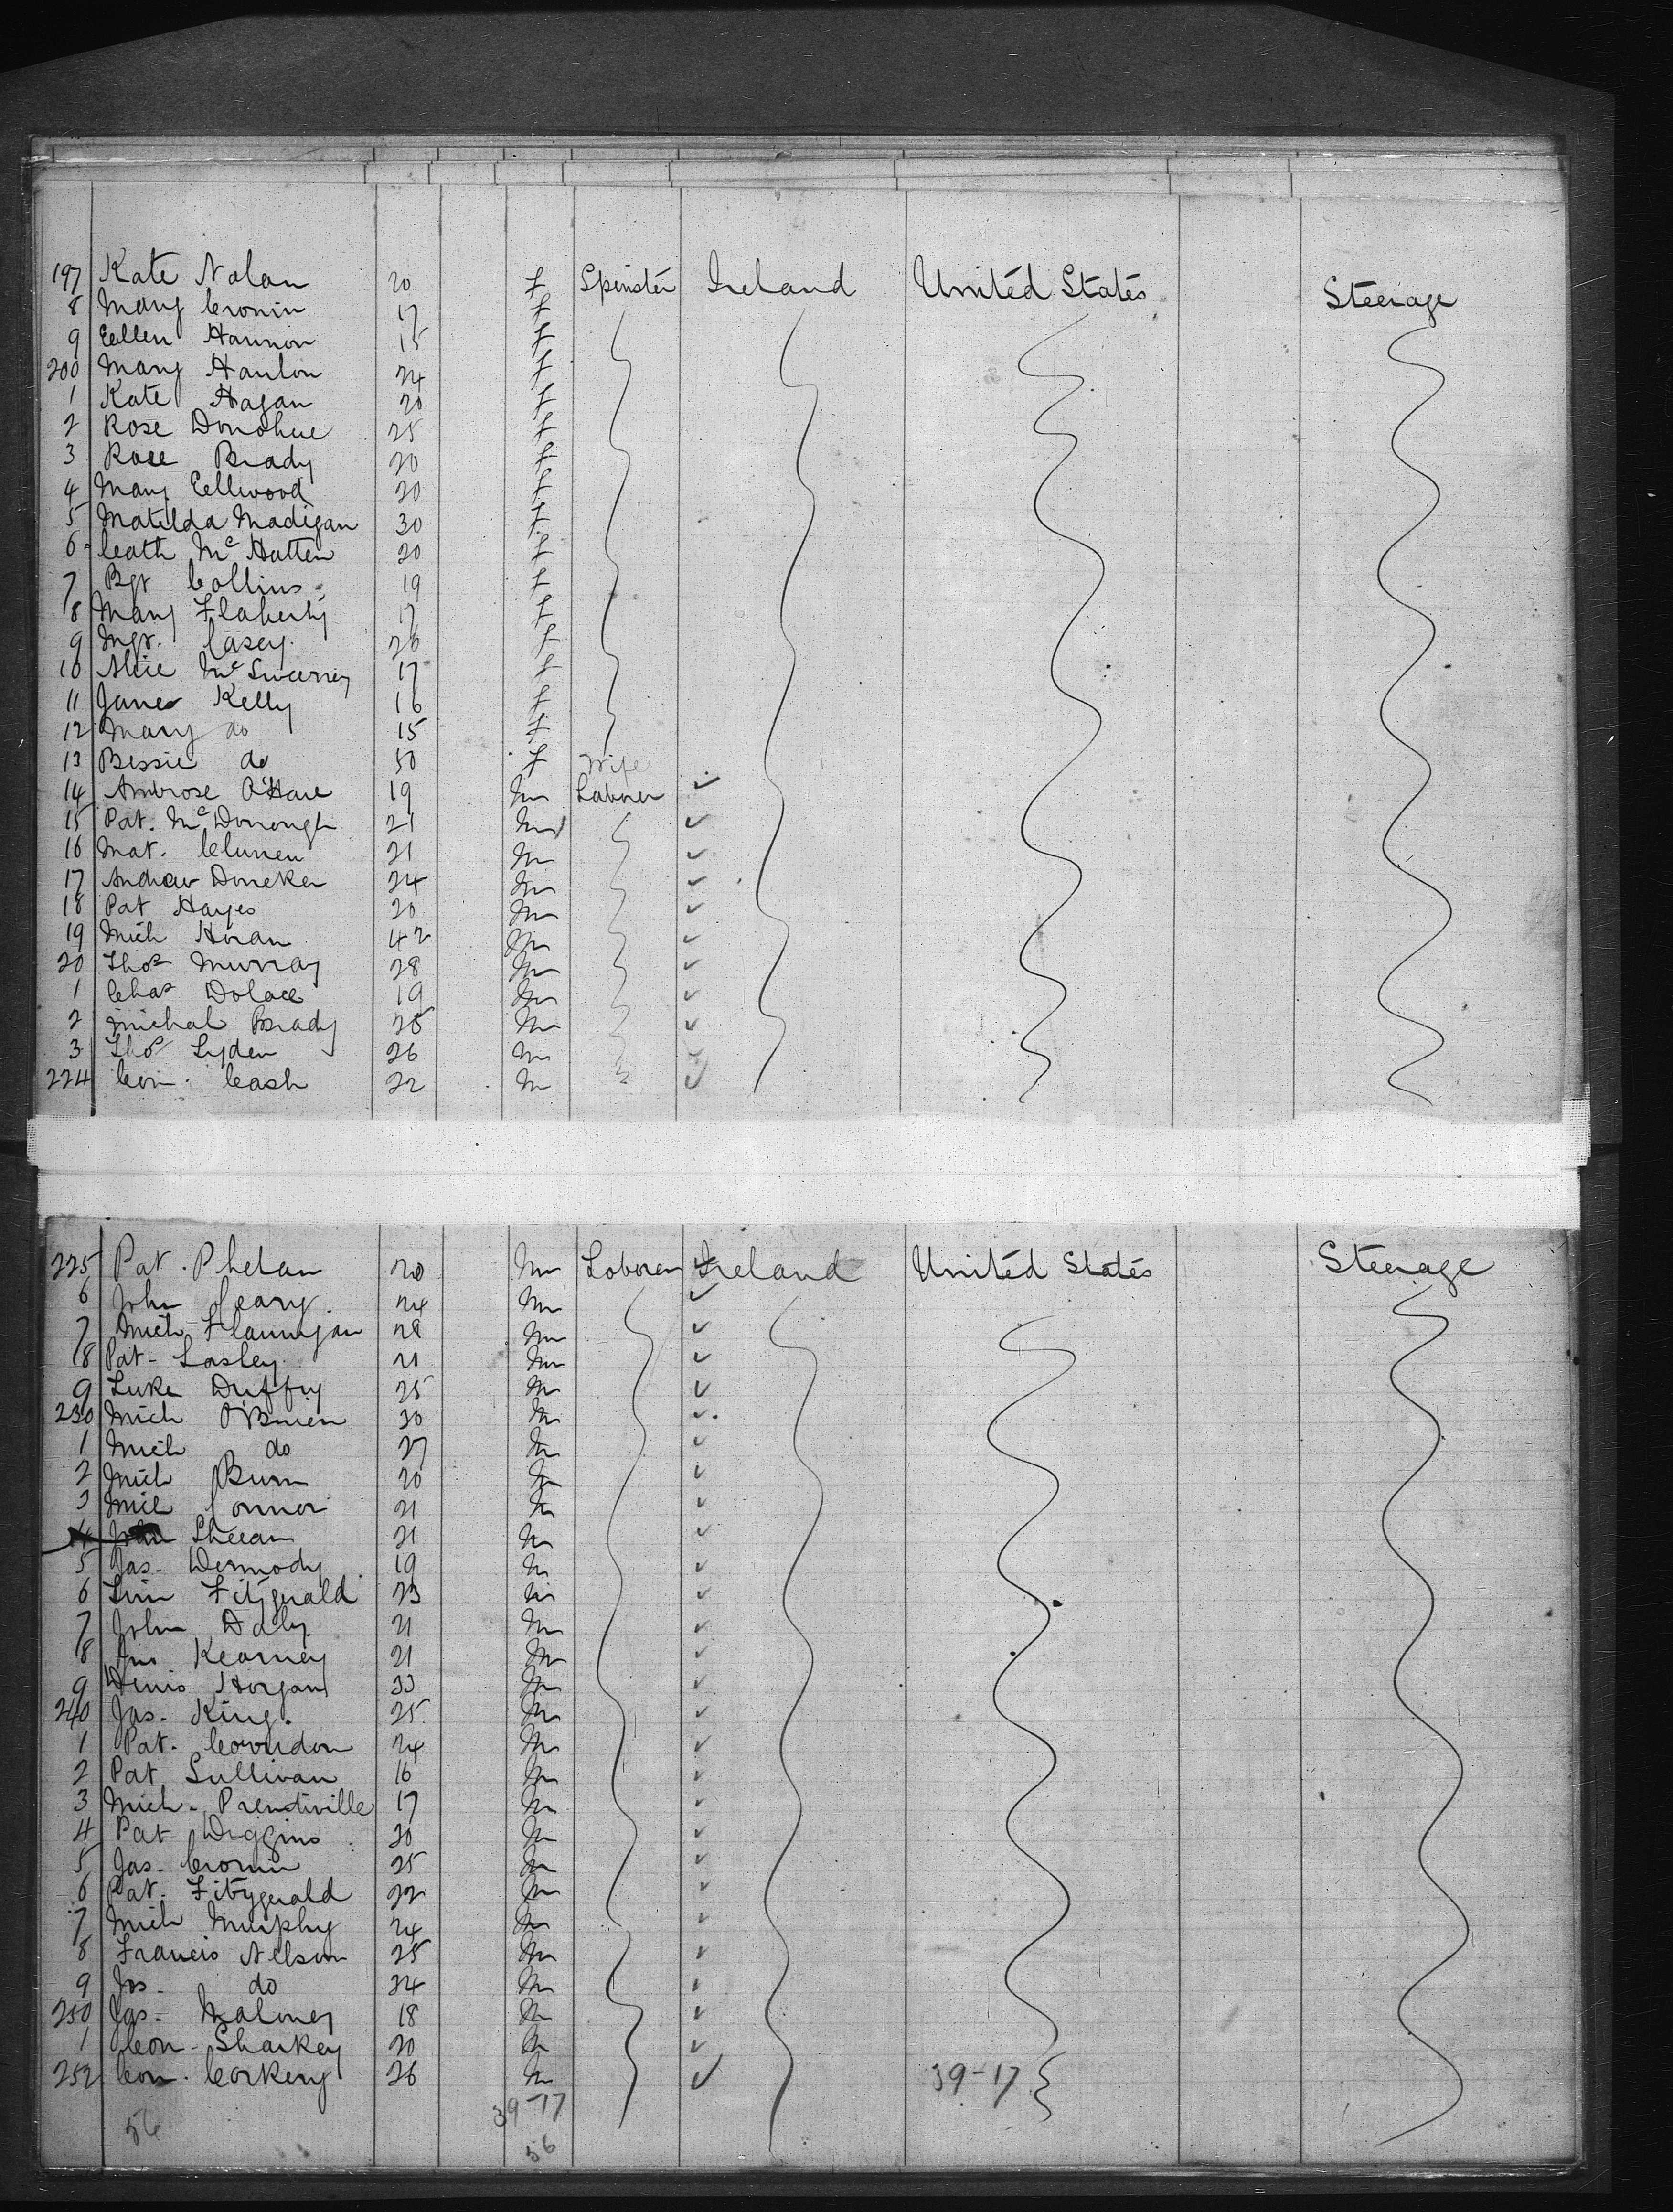 197 Kate Nolan 20 f Spinster Ireland United States Steerage
8 Mary Cronin 17 f
9 Eellen Hannon 15 f
200 Mary Hanlon 24 f
1 Kate Hagan 20 f
2 Rose Donohue 25 f
3 Rose Brady 20 f
4 Mary Eellwood 20 f
5 Matilda Madigan 30 f
6 Cath McHatten 20 f
7 Bgt Collins 19 f
8 Mary Flaherty 17 f
9 Mgt. Casey 26 f
10 Alice McSweeney 17 f
11 Jane Kelly 16 f
12 Mary do 15 f
13 Bessie do 50 f Wife
14 Ambrose O'Hare 19 m Laborer
15 Pat. McDonough 21 m
16 Mat. 21 m
17 Andrew Doneker 24 m
18 Pat Hayes 20 m
19 Mich Horan 42 m
20 Thos Murray 28 m
1 Chas Dolace 19 m
2 Michal Brady 25 m
3 Thos Lyden 26 m
224 Con. Cash 22 m
225 Pat. Phelan 20 m Laborer Ireland United States Steerage
6 John Geary. 24 m
7 Mich Flannigan 28 m
8 Pat- Lasley 21 m
9 Luke Duffy 25 m
230 Mich O'Brien 30 m
1 Mich do 27 m
2 Mich Burn 20 m
3 Mic Connor 21 m
4 John Sheean 21 m
5 Jas- Dermody 19 m
6 Fitzgerald 23 m
7 John Daly 21 m
8 Kearney 21 m
9 Denis Horgan 33 m
240 Jas- King. 25 m
1 Pat. Cowndon 24 m
2 Pat Sullivan 16 m
3 Mich- Prendiville 17 m
4 Pat Diggins 30 m
5 Jas- Cronin 25 m
6 Pat. Fitzgerald 22 m
7 Mich Murphy 24 m
8 Francis Nelson 25 m
9 Jos- do 34 m
250 Jas- Maloney 18 m
1 Con- Sharkey 20 m
252 Con. Corkery 26 m 39-17
56 39-17
56